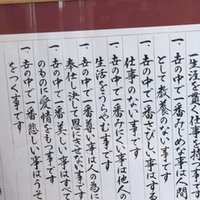 生涯を貫く仕事を持つ事です
一、世の中で一番みじめな事は人間
として教養のない事です
一、世の中で一番さびしい事はする
仕事のない事です
一、世の中で一番みにくい事は他人の
生活をうらやむ事です
一、世の中で一番尊い事は人の為に
奉仕し決して恩にきせない事です
一、世の中で一番美しい事はすべて
のものに愛情をもつ事です
一、世の中で一番悲しい事はうそ
をつく事です